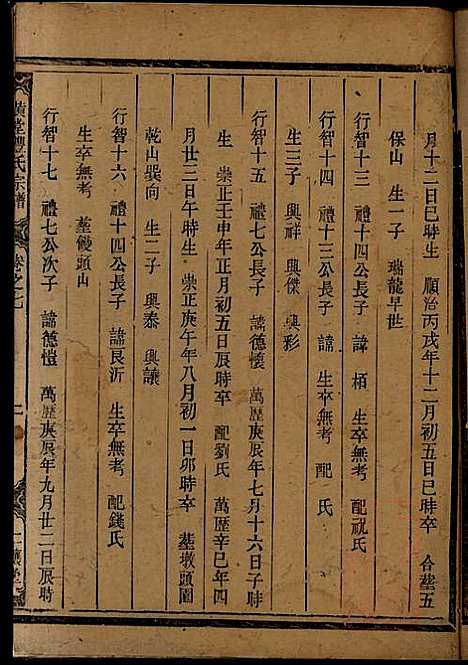 月十二日巳時生 順治丙戌年十二月初五日巳時卒 合塟五
保山 生一子 瑞龍早世
行智十三 禮十四公長子 諱栢 生卒無考 配祝氏
行智十四 禮十三公長子 諱 生卒無考 配 氏
生三子 興祥 興傑 興彩
行智十五 禮七公長子 諱德懷 萬歷庚辰年七月十六日子時
生 崇正壬申年正月初五日辰時卒 配劉氏 萬歷辛巳年四
月廿三日午時生 崇正庚午年八月初一日卯時卒 塟墩頭園
乾山巽向 生二子 興泰 興議
行智十六 禮十四公長子 諱良沂 生卒無考 配錢氏
生卒無考 塟饅頭山
行智十七 禮七公次子 諱德愷 萬歷庚辰年九月廿二日辰時
豐氏宗譜 卷之七